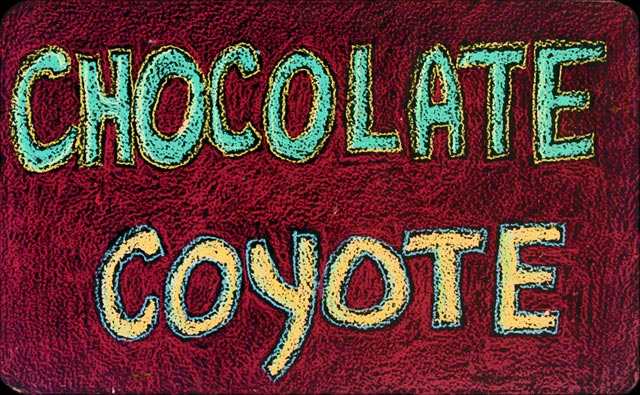 CHOCOLATE
COYOTE